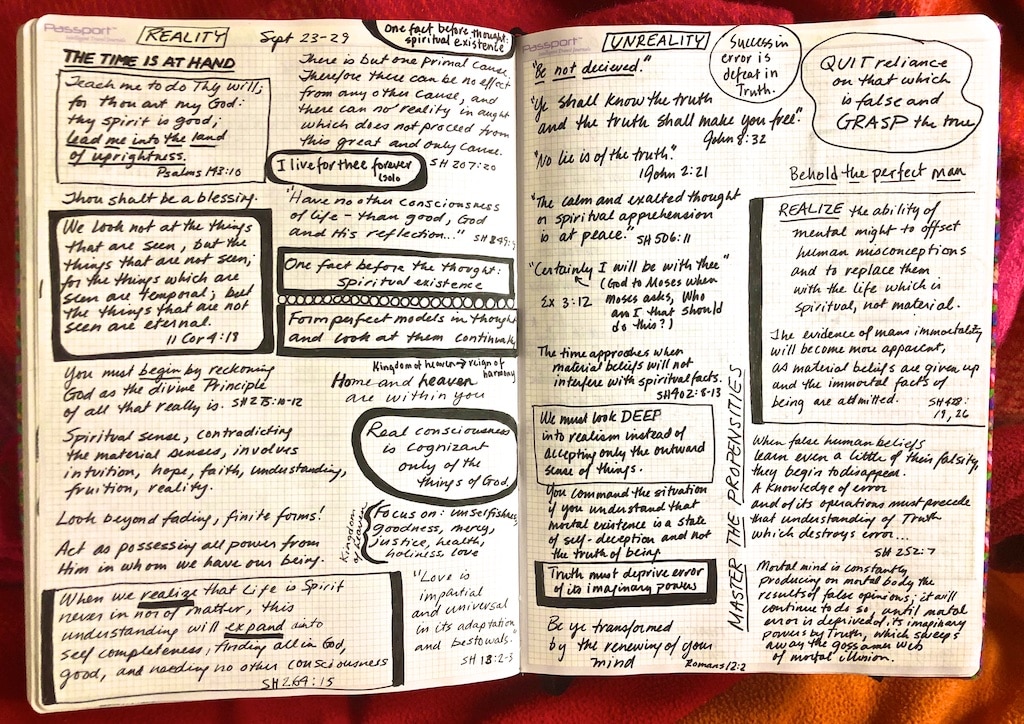 Passport™
REALITY
Sept 23-29
THE TIME IS AT HAND
Teach me to do Thy will;
for thou art my God:
thy spirit is good;
lead me into the land
of uprightness.
Psalms 143:10
Thou shalt be a blessing.
We look not at the things
that are seen, but the
things that are not seen;
for the things which are
seen are temporal; but
the things that are not
seen are eternal.
II Cor 4:18
You must begin by reckoning
God as the divine Principle
of all that really is. SH 275:10-12
Spiritual sense, contradicting
the material senses, involves
intuition, hope, faith, understanding,
fruition, reality.
Look beyond fading, finite forms!
Act as possessing all power from
Him in whom we have our being.
When we realize that Life is Spirit
never in nor of matter, this
understanding will expand into
self completeness, finding all in God,
good, and needing no other consciousness
SH 264:15
One fact before thought:
spiritual existence
There is but one primal cause.
Therefore there can be no effect
from any other cause, and
there can no reality in aught
which does not proceed from
this great and only cause.
SH 207:20
I live for thee forever
(solo
"Have no other consciousness
of life - than good, God
and His reflection..."
One fact before the thought:
spiritual existence
Form perfect models in thought
and look at them
Kingdom of heaven → reign of
harmony
Home and heaven
are within you
Real consciousness
is cognizant
only of the
things of God.
Kingdom
of heaven
Focus on: unselfishness
goodness, mercy,
justice, health,
holiness, love
"Love is
impartial
and universal
in its adaptation
and bestowals."
SH 13:2-3
Passport™
UNREALITY
"Be not decieved."
Success in
error is
defeat in
Truth.
QUIT reliance
on that which
is false and
GRASP the true
"Ye shall know the truth
and the truth shall make you free."
John 8:32
"No lie is of the truth."
1 John 2:21
"The calm and exalted thought
or spiritual apprehension
is at peace." SH 506:11
"Certainly I will be with thee"
Ex 3:12
(God to Moses when
Moses asks, Who
am I that should
do this?)
The time approaches when
material beliefs will not
interfere with spiritual facts.
SH 402:8-13
We must look DEEP
into realism instead of
accepting only the outward
sense of things.
You command the situation
if you understand that
mortal existence is a state
of self-deception and not
the truth of being.
Truth must deprive error
of its imaginary powers
Be ye transformed
by the renewing of your
mind
Romans 12:2
MASTER THE PROPENSITIES
Behold the perfect man
REALIZE the ability of
mental might to offset
human misconceptions
and to replace them
with the life which is
spiritual, not material.
The evidence of mans immortality
will become more apparent,
as material beliefs are given up
and the immortal facts of
being are admitted.
SH 428:
19, 26
When false human beliefs
learn even a little of their falsity,
they begin to disappear.
A knowledge of error
and of its operations must precede
that understanding of Truth
which destroys error...
SH 252:7
Mortal mind is constantly
producing on mortal body the
results of false opinions; it will
continue to do so, until mortal
error is deprived of its imaginary
powers by Truth, which sweeps
away the gossamer web
of mortal illusion.